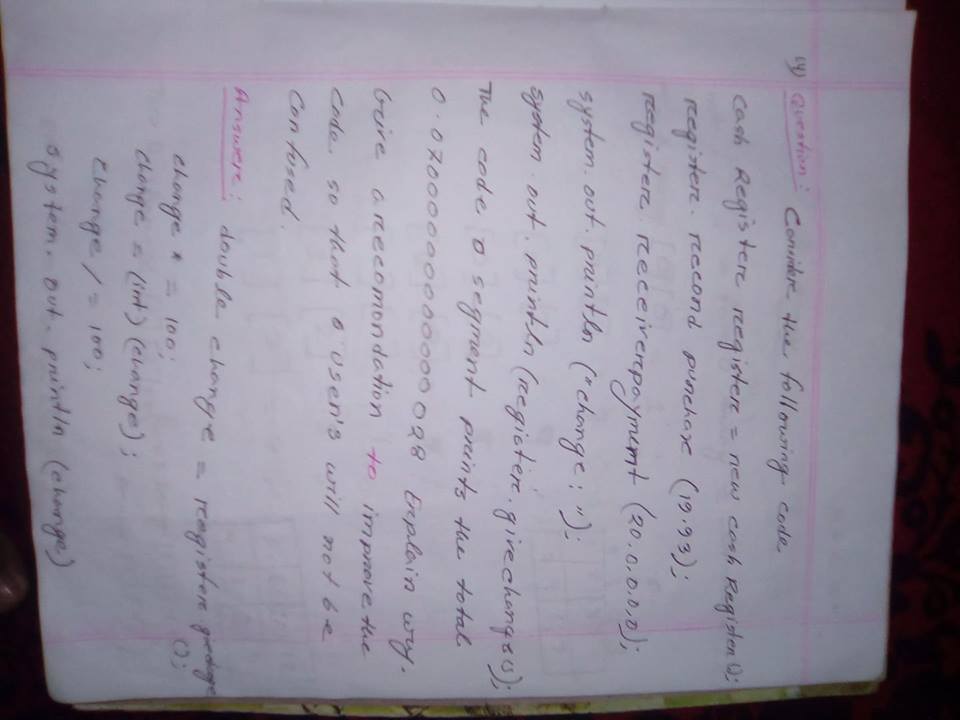 14) Question: Considere the following code
Cash Registere registere = new cash Register ();
register. record purchase (19.93);
registere receiverpayment (20.0,0,0,0);
system. out. println ("change: ");
system out. println (registere. givechange());
The code segment prints the total
0.07000000000000028 Explain wry.
Grive a recomondation to improve the
code so that users will not be
Confused.
Answere: double change = reegistere givechange
();
change * = 100;
change = (int) (change);
change / = 100;
system. out. println (change)